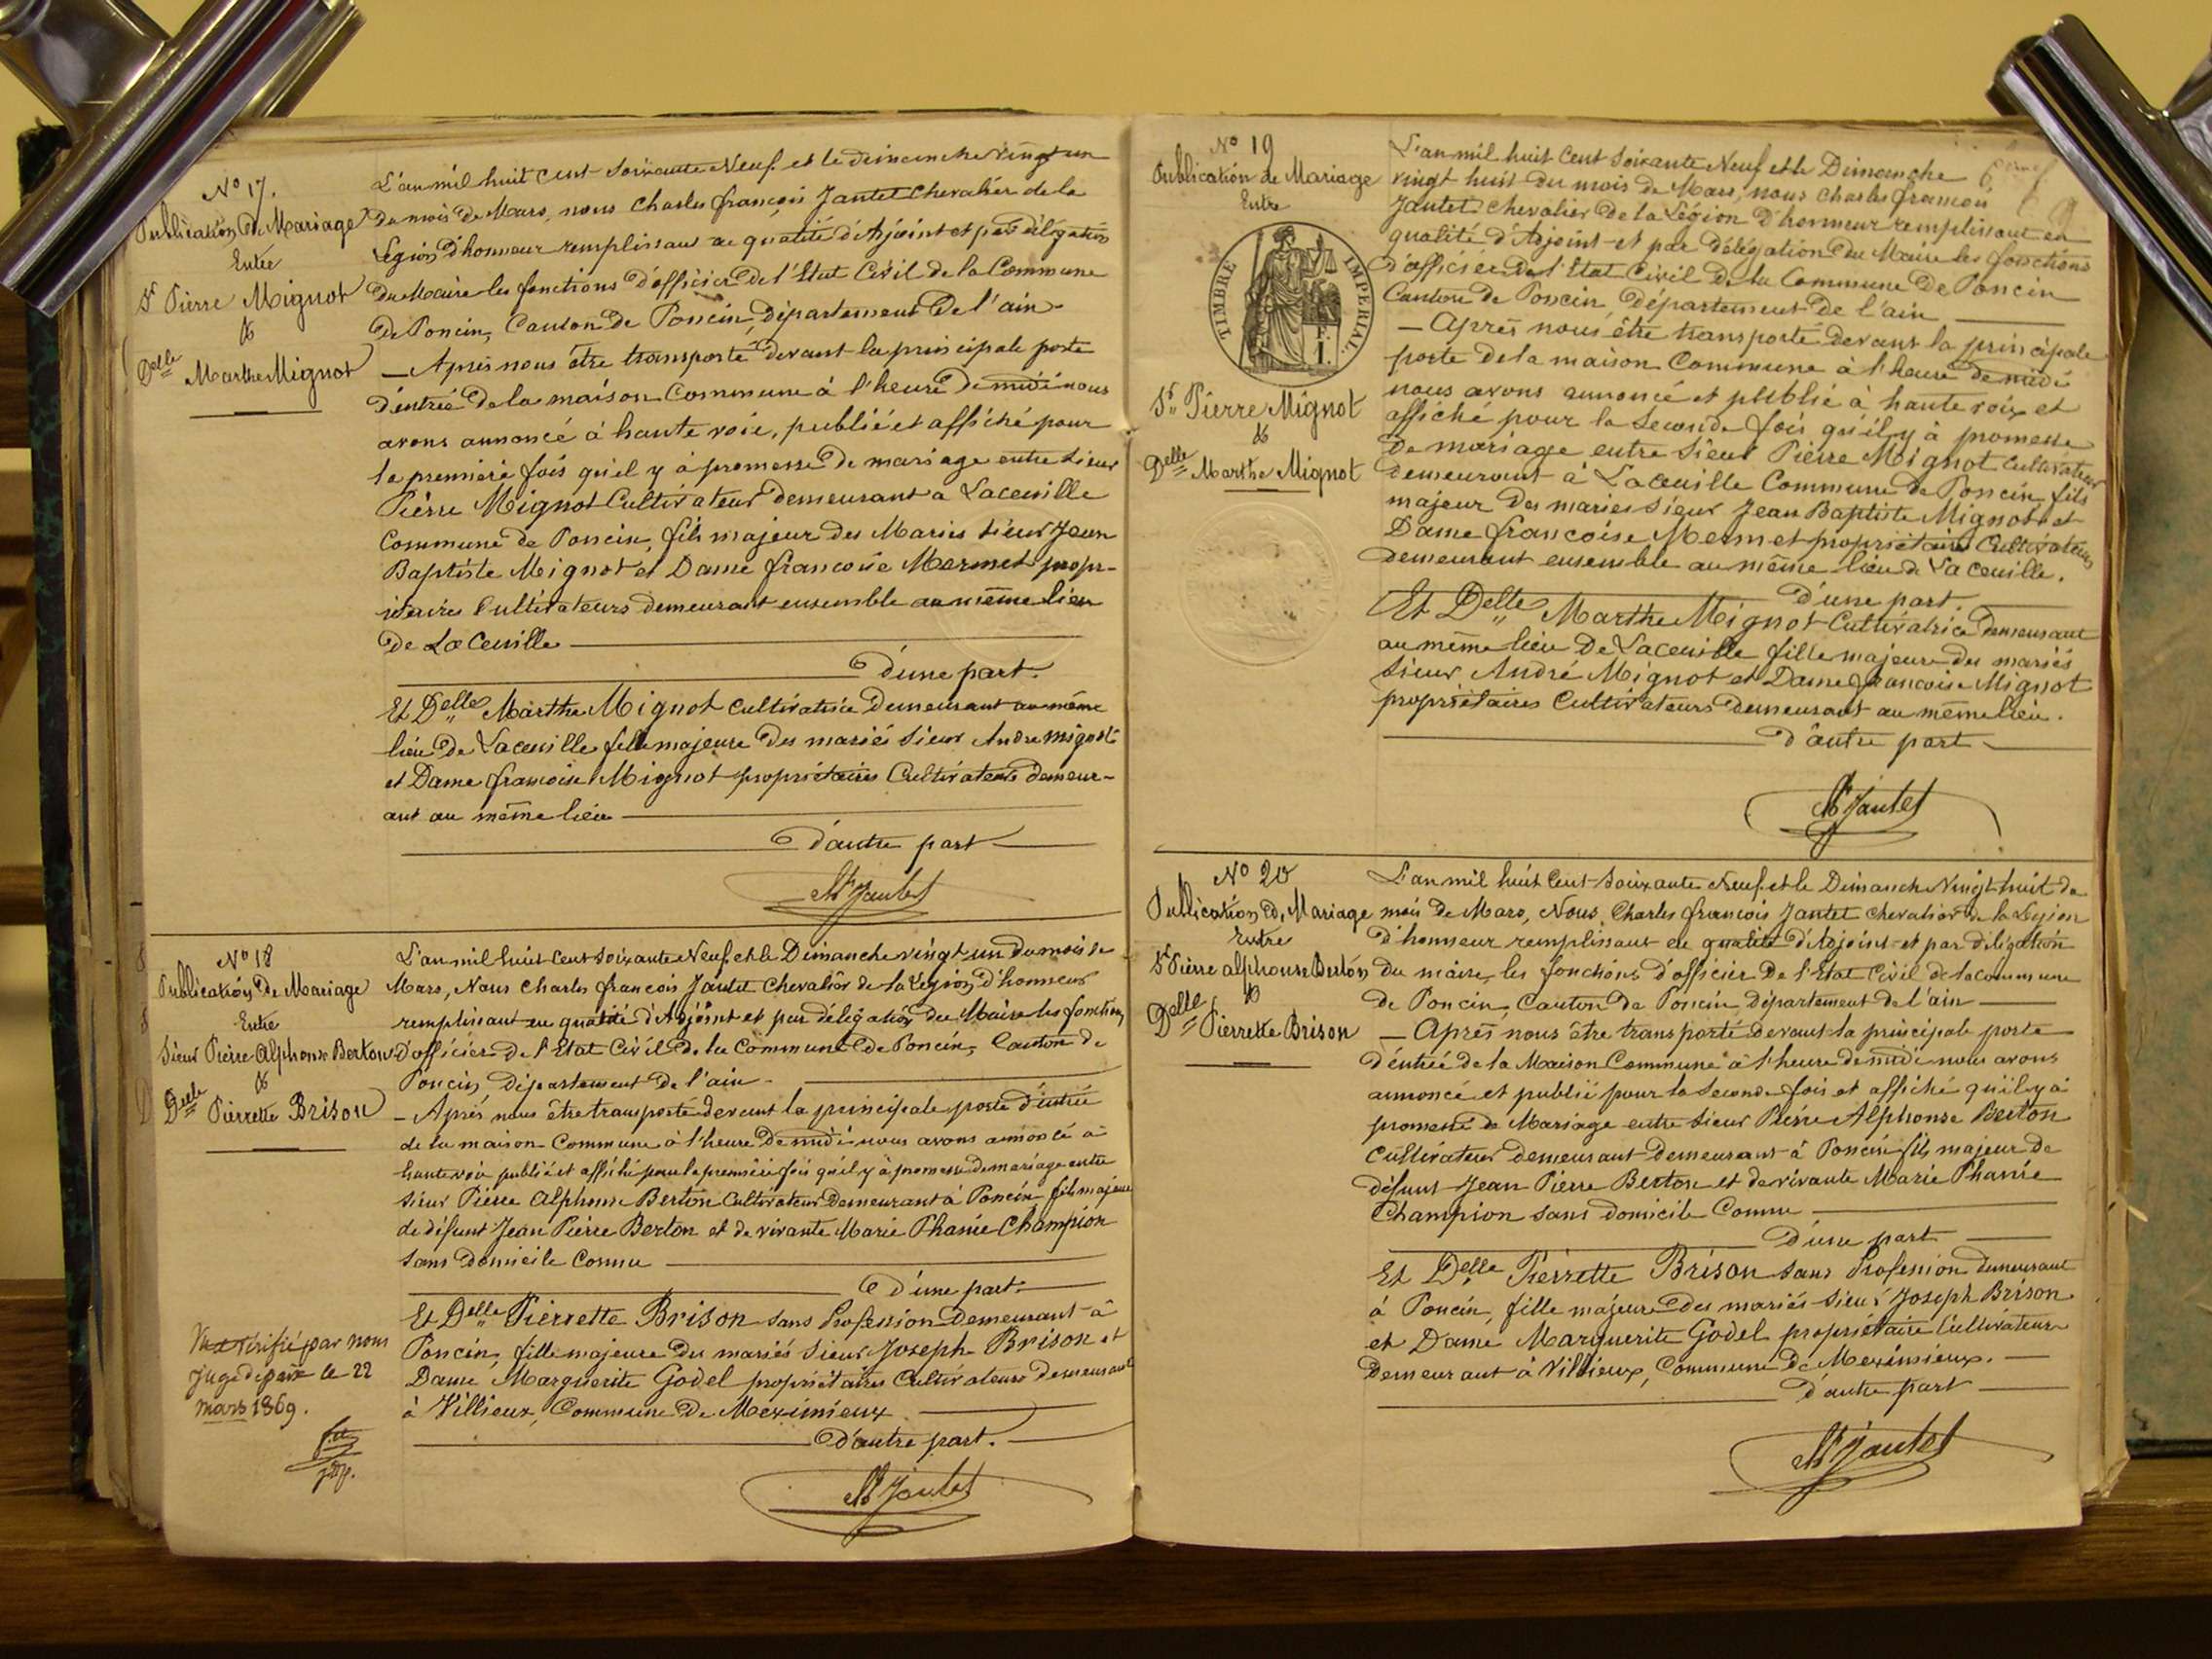 No 17.
Publication de Mariage
Entre
Sr Pierre Mignot
&
Delle Marthe Mignot
L'an mil huit cent soixante Neuf et le dimanche vingt un
du mois de Mars, nous Charles françois Jantet chevalier de la
Légion d'honneur remplissant en qualité d'Adjoint et par délégation
du Maire les fonctions d'officier de l'Etat Civil de la Commune
de Poncin, Canton de Poncin, département de l'ain.
— Après nous être transporté devant la principale porte
d'entrée de la maison Commune à l'heure de midi nous
avons annoncé à haute voie, publié et affiché pour
la première fois qu'il y à promesse de mariage entre sieur
Pierre Mignot Cultivateur demeurant a Laceuille
Commune de Poncin, fils majeur des Mariés sieur Jean
Baptiste Mignot et Dame francoise Mermet propr-
iétaires Cultivateurs demeurant ensemble au même lieu
de La Ceuille
d'une part.
Et Delle Marthe Mignot cultivatrice demeurant au même
lieu de Laceuille fille majeure des mariés sieur Andre Mignot
et Dame francoise Mignot propriétaires Cultivateurs demeur-
ant au même lieu
d'autre part
Ch Jantet
No 18
Publication de Mariage
Entre
Sieur Pierre Alphonse Berton
&
Delle Pierrette Brison
L'an mil huit cent soixante Neuf et le Dimanche vingt un du mois de
Mars, Nous Charles francois Jantet Chevalier de la Légion d'honneur
remplissant en qualité d'Adjoint et par délégation du Maire les fonctions
d'officier de l'Etat Civil de la Commune de Poncin, Canton de
Poncin, département de l'ain.
— Après nous être transporté devant la principale porte d'entrée
de la maison Commune à l'heure de midi nous avons annoncé à
haute voie publié et affiché pour la première fois qu'il y à promesse de mariage entre
sieur Pierre Alphonse Berton Cultivateur demeurant à Poncin fils majeur
de défunt Jean Pierre Berton et de vivante Marie Phanie Champion
sans domicile Connu
d'une part.
Et Delle Pierrette Brison sans Profession demeurant à
Poncin, fille majeure des mariés sieur Joseph Brison et
Dame Marguerite Godel propriétaires Cultivateurs demeurant
à Villieux, Commune de Meximieux
d'autre part.
Ch Jantet
Vu et vérifié par nous
Juge de paix le 22
mars 1869.
No 19
Publication de Mariage
Entre
TIMBRE IMPERIAL
1 F.
Sr Pierre Mignot
&
Delle Marthe Mignot
L'an mil huit Cent soixante Neuf et le Dimanche
vingt huit du mois de Mars, nous Charles francois
Jantet chevalier de la Légion d'honneur remplissant en
qualité d'Adjoint et par délégation du Maire les fonctions
d'officier de l'Etat Civil de la Commune de Poncin
Canton de Poncin, département de l'ain
— Après nous être transporté devant la principale
porte de la maison Commune à l'heure de midi
nous avons annoncé et publié à haute voix et
affiché pour la seconde fois qu'il y à promesse
de mariage entre sieur Pierre Mignot Cultivateur
demeurant à Laceuille Commune de Poncin, fils
majeur des mariés sieur Jean Baptiste Mignot et
Dame francoise Mermet propriétaires Cultivateurs
demeurant ensemble au même lieu de La Ceuille.
d'une part.
Et Delle Marthe Mignot Cultivatrice demeurant
au même lieu de Laceuille fille majeure des mariés
sieur André Mignot et Dame francoise Mignot
propriétaires Cultivateurs demeurant au même lieu.
d'autre part
Ch Jantet
No 20
Publication de Mariage
Entre
Sr Pierre alphonse Berton
&
Delle Pierrette Brison
L'an mil huit Cent soixante Neuf et le Dimanche Vingt huit du
mois de Mars, Nous Charles francois Jantet chevalier de la Légion
d'honneur remplissant en qualité d'Adjoint et par délégation
du maire, les fonctions d'officier de l'Etat Civil de la commune
de Poncin, Canton de Poncin, département de l'ain
— Après nous être transporté devant la principale porte
d'entrée de la Maison Commune à l'heure de midi nous avons
annoncé et publié pour la seconde fois et affiché qu'il y à
promesse de Mariage entre sieur Pierre Alphonse Berton
Cultivateur demeurant demeurant à Poncin fils majeur de
défunt Jean Pierre Berton et de vivante Marie Phanie
Champion sans domicile Connu
d'une part
Et Delle Pierrette Brison sans Profession demeurant
à Poncin, fille majeure des mariés sieur Joseph Brison
et Dame Marguerite Godel propriétaire Cultivateurs
demeurant à Villieux, Commune de Meximieux.
d'autre part
Ch Jantet